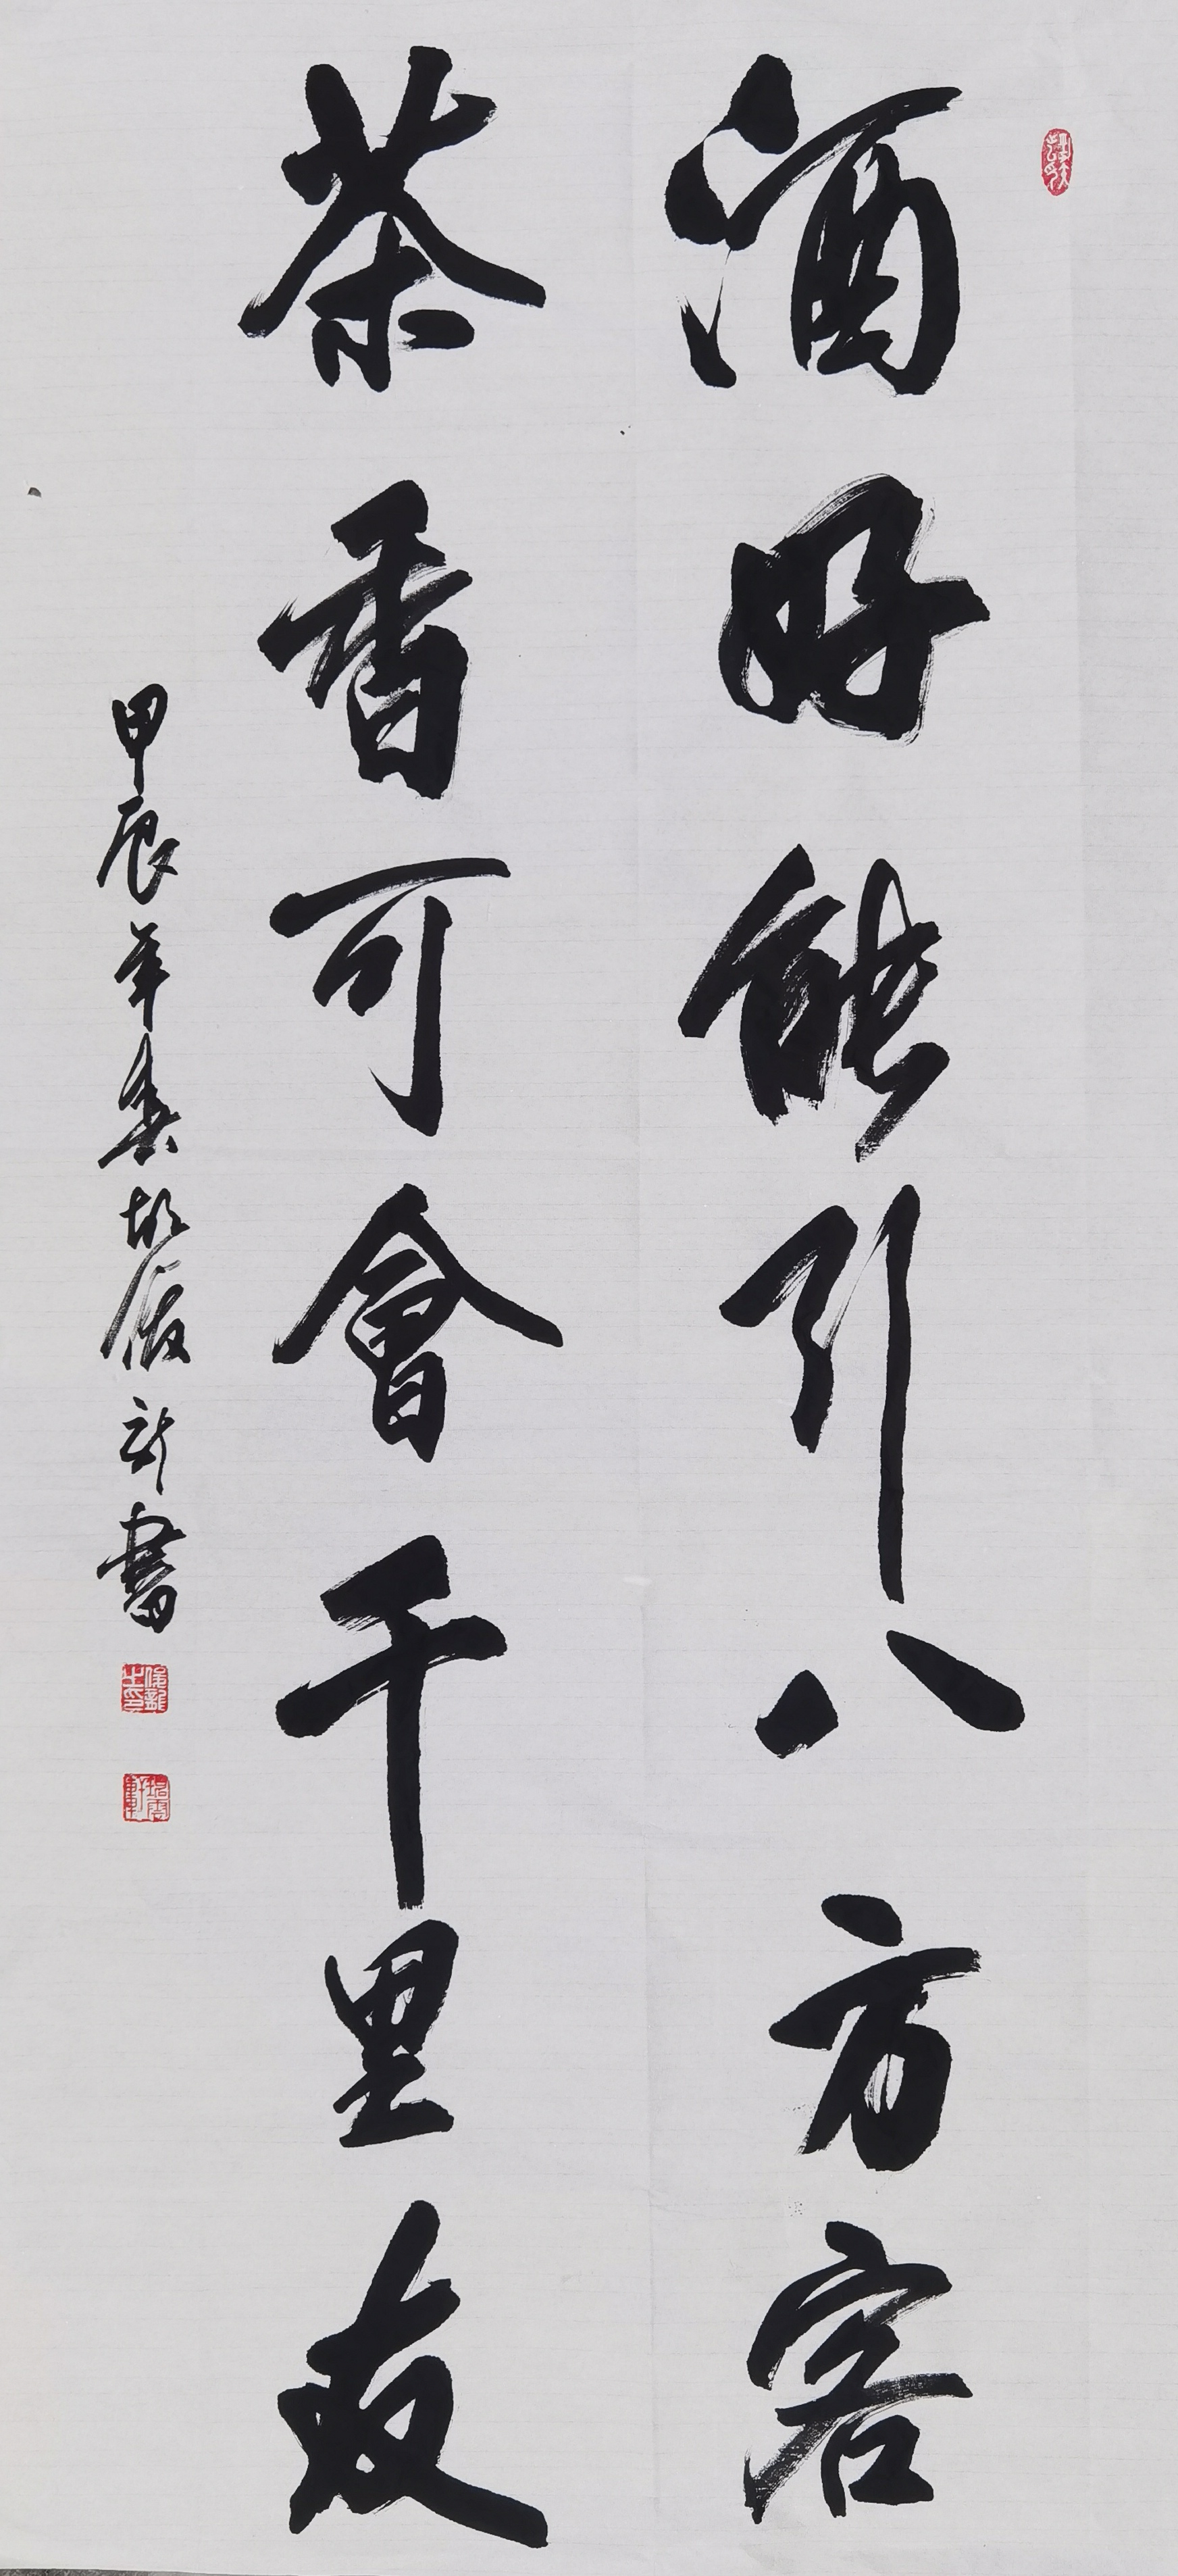 酒好能引八方客
茶香可會千里友
甲辰年春胡俊新書